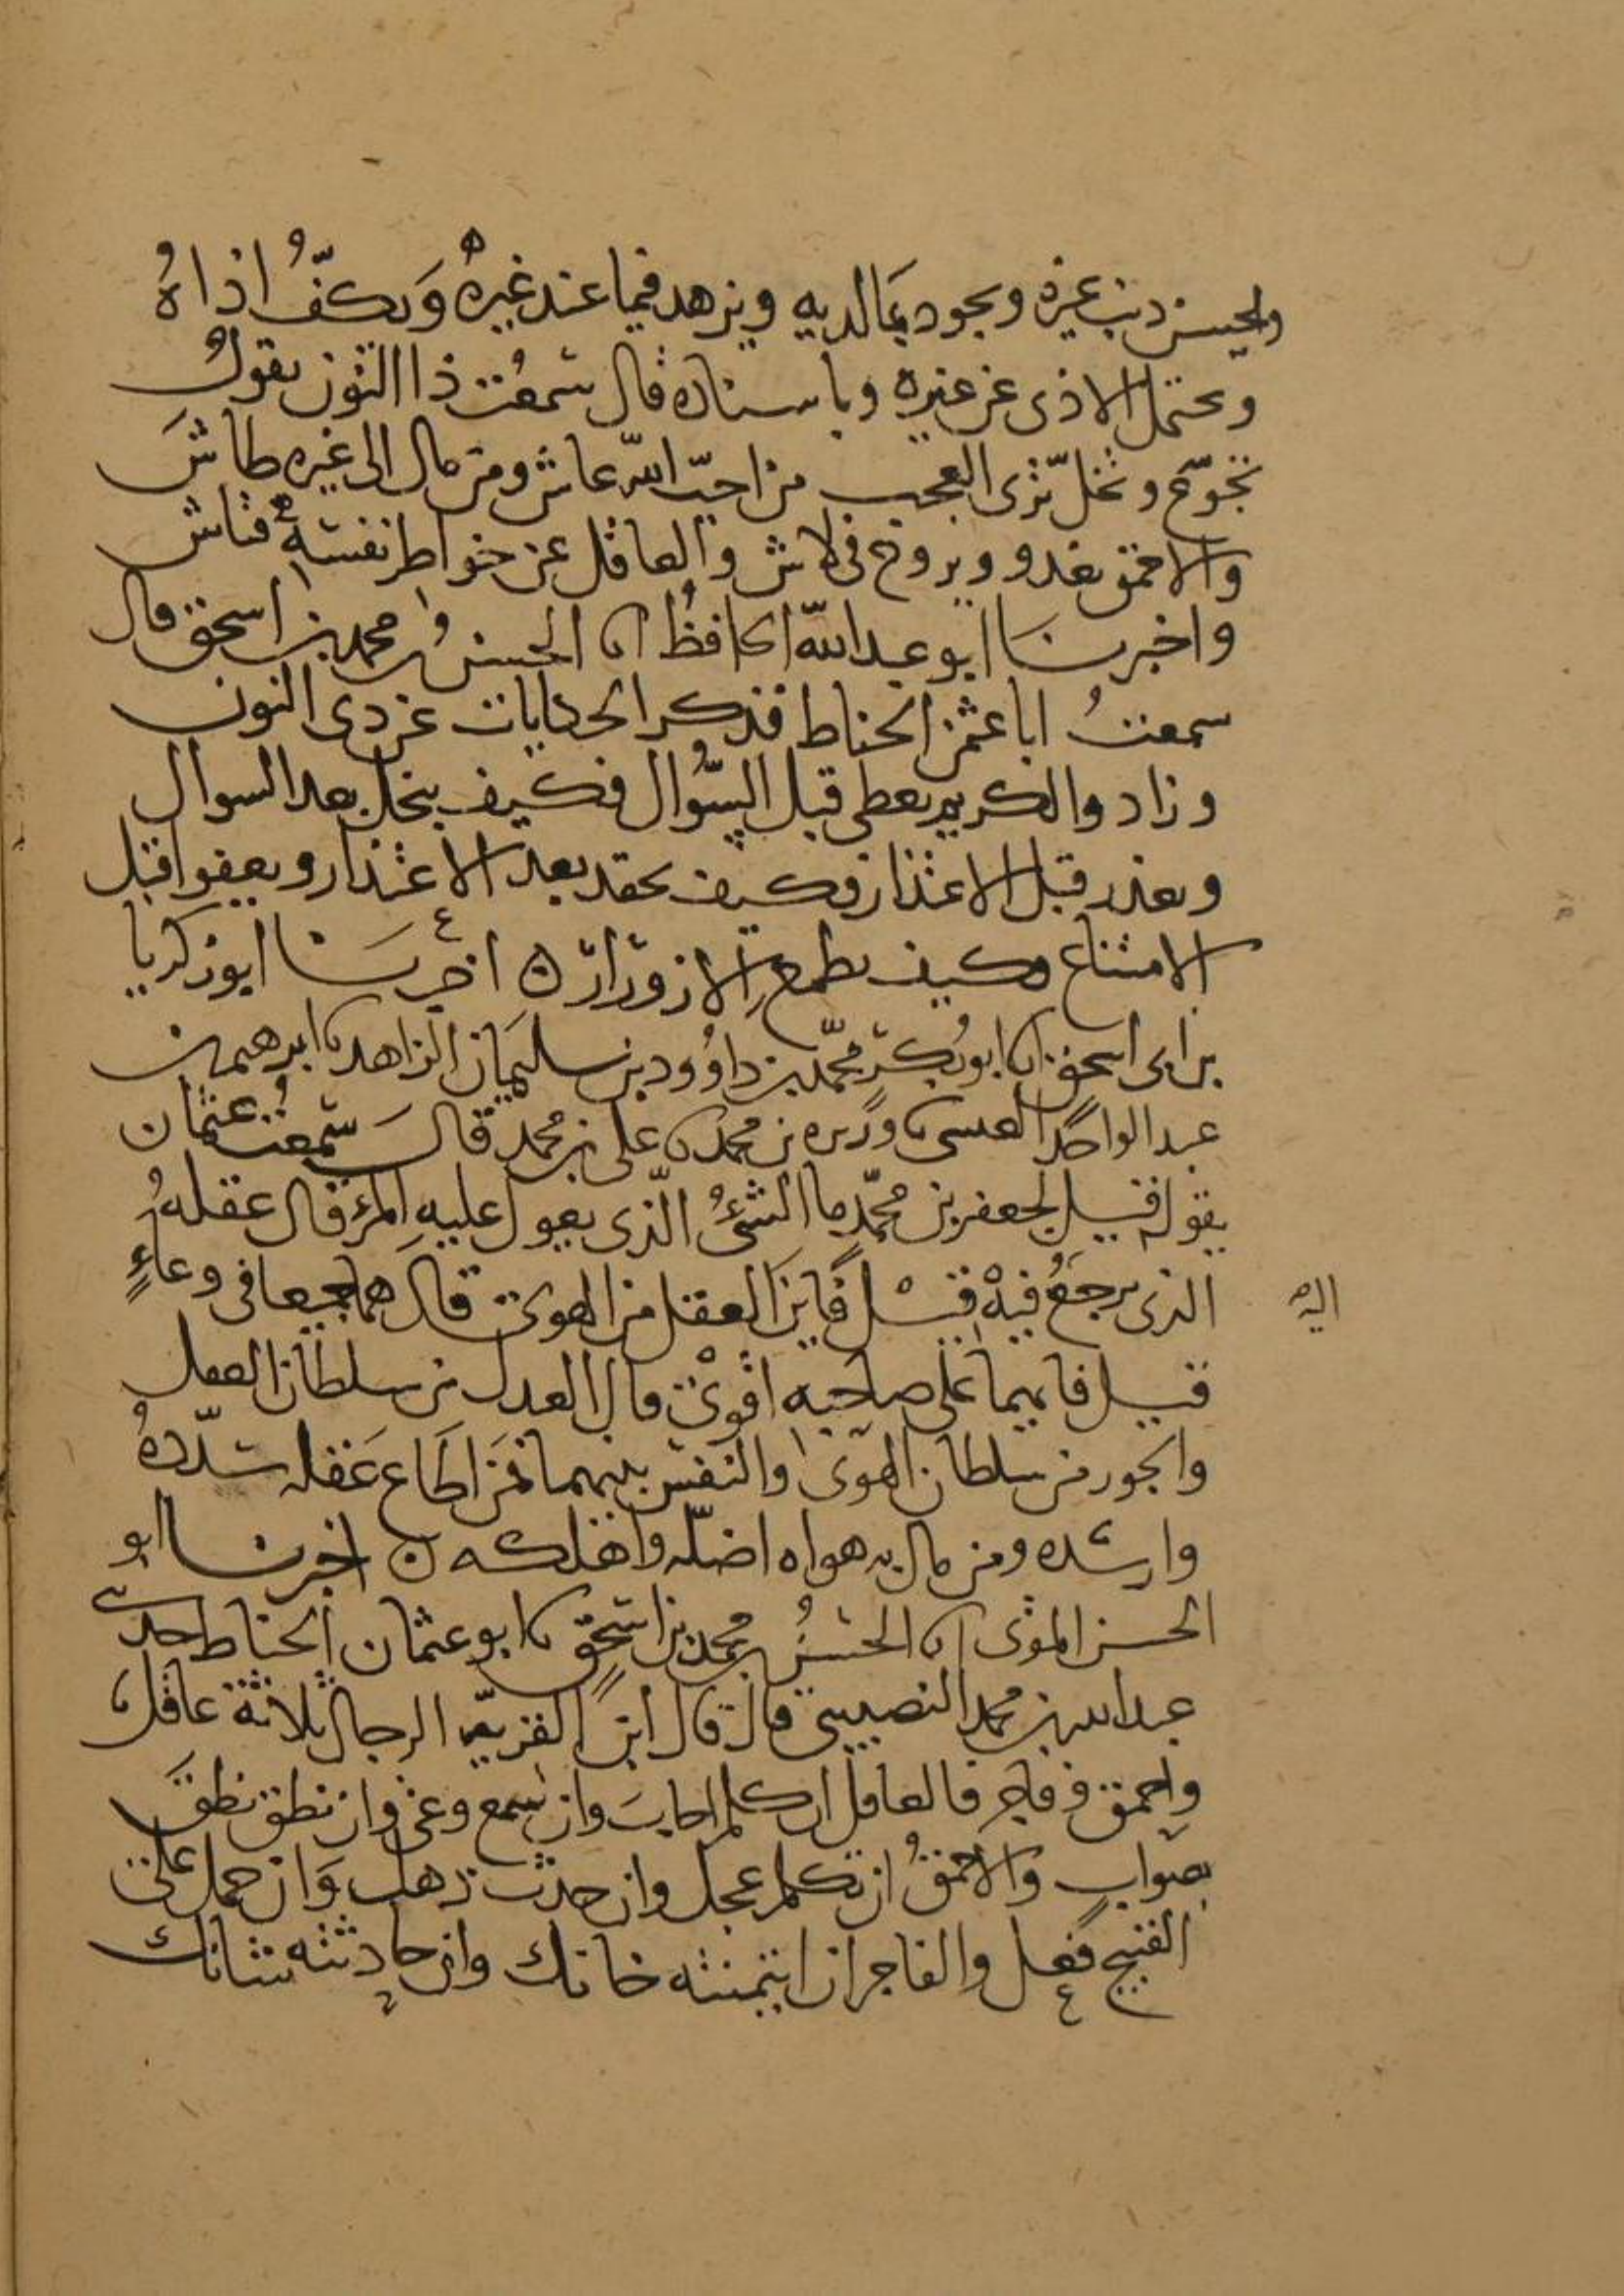 ولحسن ذنب غيره ويجود بما لديه ويزهد فيما عند غيره ويكفّ اذاه
ويحتمل الاذى عن غيره وباسناده قال سمعت ذا النون يقول
تجوّع وتخلّ ترى العجب من احبّ الله عاش ومن مال الى غيره طاش
والاحمق يغدو ويروح في لاش والعاقل عن خواطر نفسه فتاش
واخبرنا ابو عبد الله الحافظ انا الحسن بن محمد بن اسحق قال
سمعت ابا عثمن الحناط فذكر الحكايات عن ذى النون
وزاد والكريم يعطى قبل السؤال فكيف يبخل بعد السوال
ويعذر قبل الاعتذار فكيف يحقد بعد الاعتذار ويعفوا قبل
الامتناع فكيف يطمع الازورار ه اخبرنا ابو زكريا
بن ابى اسحق انا ابو بكر محمّد بن داوود بن سليمان الزاهد نا ابرهيم بن
عبد الواحد العبسى نا وريزه بن محمد نا على بن محمد قال سمعت عثمان
يقول قيل لجعفر بن محمّد ما الشئ الّذى يعول عليه المرء قال عقله
الذى يرجع فيه قيل فاين العقل من الهوى قال هما جميعا فى وعاءٍ
اليه
قيل فايهما على صاحبه اقوى قال العدل من سلطان العقل
والجور من سلطان الهوى والنفس بينهما فمن اطاع عقله سدّده
وارشده ومن مال به هواه اضلّه واهلكه ن اخبرنا ابو
الحسن المقرى انا الحسن بن محمد بن اسحق نا ابو عثمان الحناط حدثنى
عبد الله بن محمد النصيبى قال قال ابن القريّه الرجال ثلاثة عاقل
واحمق وفاجر فالعاقل ان كلم اجاب وان سمع وعى وان نطق نطق
بصواب والاحمق ان تكلم عجل وان حدث ذهل وان حمل على
القبيح فعل والفاجر ان ايتمنته خانك وان حادثته شانك